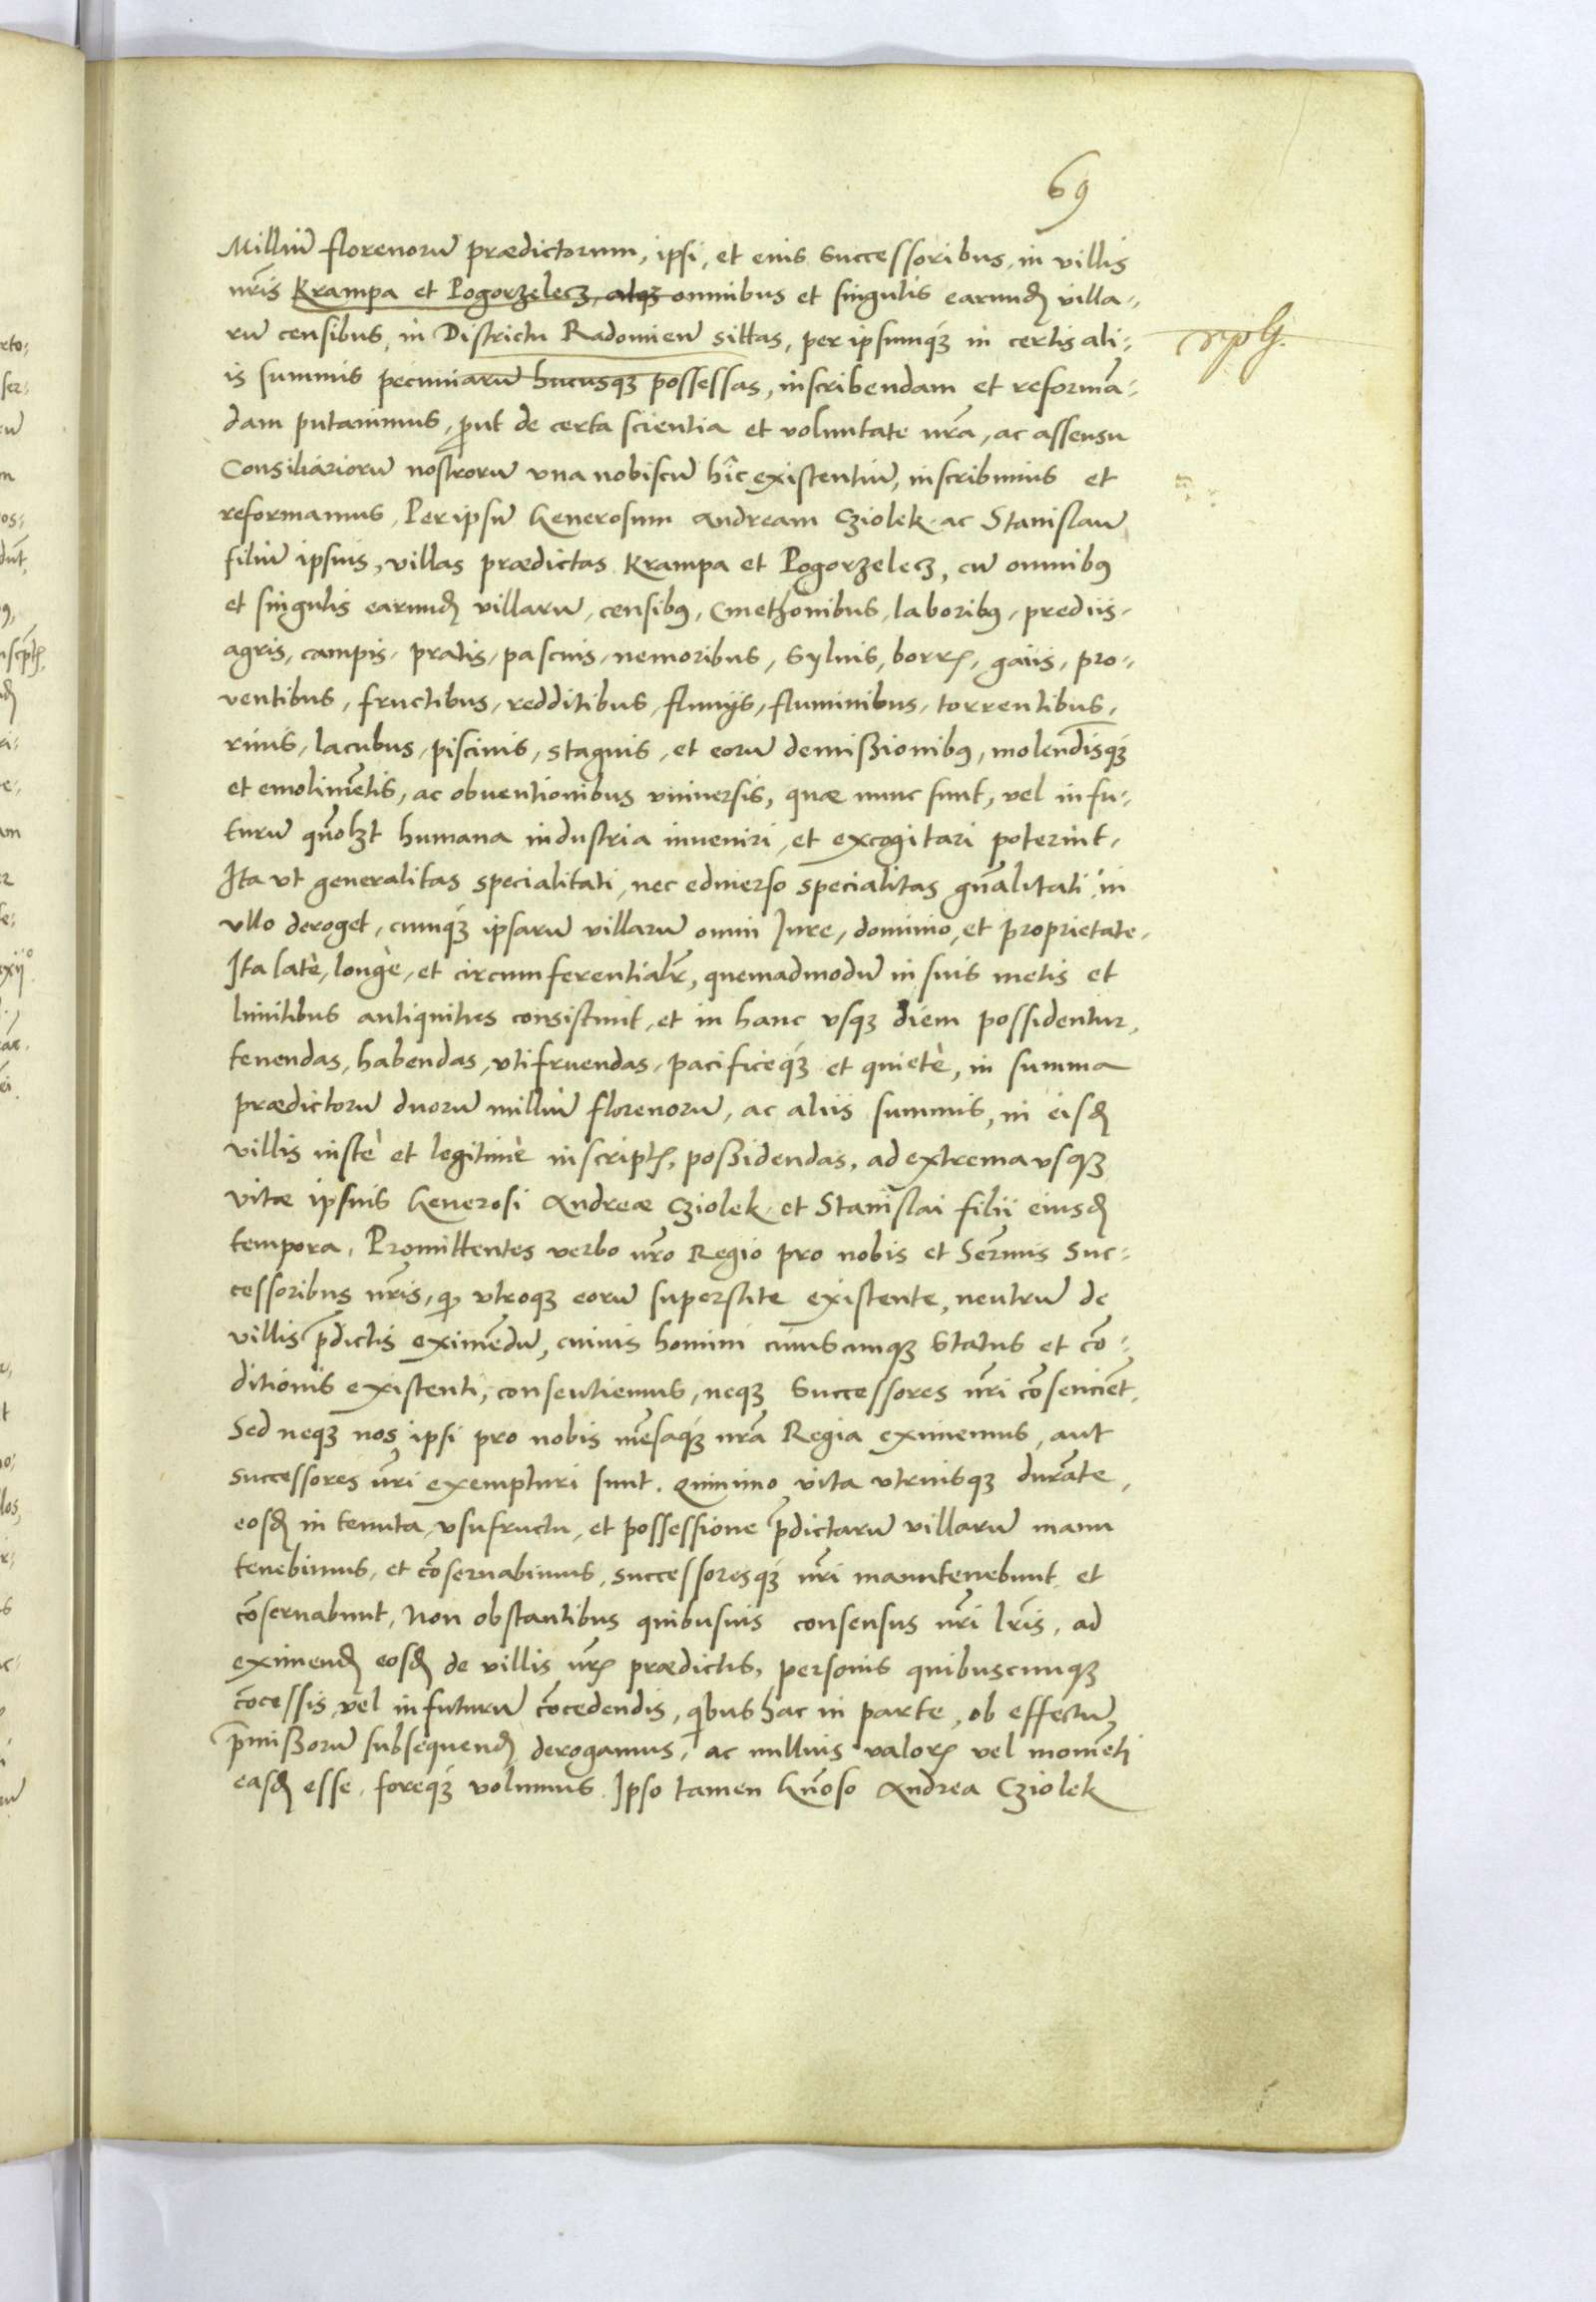 69
Milliū florenorū prædictorum, ipsi, et eius successoribus, in villis
nr̃is Krampa et Pogorzelecz, atqʒ omnibus et singulis earundẽ villa-
rū censibus, in Districtu Radomien̄ sittas, per ipsumqʒ́ in certis ali-
is summis pecuniarū hucusqʒ possessas, inscribendam et reformā-
dam putauimus, ꝓut de certa scientia et voluntate nr̃a, ac assensu
Consiliariorū nostrorū vna nobiscū hîc existentiū, inscribimus et
reformamus, Per ipsū Generosum Andream Cziolek ac Stanislaū
filiū ipsius, villas prædictas Krampa et Pogorzelecz, cū omnibꝰ
et singulis earundẽ villarū, censibꝰ, Cmethonibus, laboribꝰ, prediis,
agris, campis, pratis, pascuis, nemoribus, syluis, borrẽ, gaiis, pro-
ventibus, fructibus, redditibus, fluuijs, fluminibus, torrentibus,
riuis, lacubus, piscinis, stagnis, et eorū demißionibꝰ, molendīsqʒ́
et emolimētis, ac obuentionibus vniuersis, quæ nunc sunt, vel in fu-
turū quōlʒt humana industria inueniri, et excogitari poterint,
Ita vt generalitas specialitati, nec eduierso specialitas gñalitati in
vllo deroget, cumqʒ́ ipsarū villarū omni Iure, dominio, et proprietate,
Ita latè, longè, et circumferentialr̄, quemadmodū in suis metis et
limitibus antiquitus consistunt, et in hanc vsqʒ diem possidentur,
tenendas, habendas, vtifruendas, pacificeqʒ́ et quietè, in summa
prædictorū duorū milliū florenorū, ac aliis summis, in eisdẽ
villis iustè et legitimè inscriptẽ, poßidendas, ad extrema vsqʒ
vitæ ipsius Generosi Andreæ Cziolek et Stanislai filii eiusdẽ
tempora, Promittentes verbo nr̃o Regio pro nobis et Serm̃is Suc-
cessoribus nr̃is, qꝫ vtroqʒ eorū superstite existente, neutrū de
villis p̄dictis eximēdū, cuiuis homini cuiuscunqʒ status et cō-
ditionis existenti, consentiemus, neqʒ Successores nr̃i cōsencient,
Sed neqʒ nos ipsi pro nobis mēsaqʒ́ nr̃a Regia eximemus, aut
successores nr̃i exempturi sunt. Quinimo vita vtriusqʒ durāte,
eosdẽ in tenuta, vsufructu, et possessione p̄dictarū villarū manu
tenebimus, et cōseruabimus, successoresqʒ́ nr̃i manutenebunt et
cōseruabunt, Non obstantibus quibusuis consensus nr̃i lr̃is, ad
eximendẽ eosdẽ de villis nr̃ẽ prædictis, personis quibuscunqʒ
cōcessis, vel in futurū cōcedendis, qͥbus hac in parte, ob effectū
p̄mißorū subsequendẽ derogamus, ac nullius valorẽ vel momēti
easdẽ esse, foreqʒ́ volumus. Ipso tamen Gñoso Andrea Cziolek